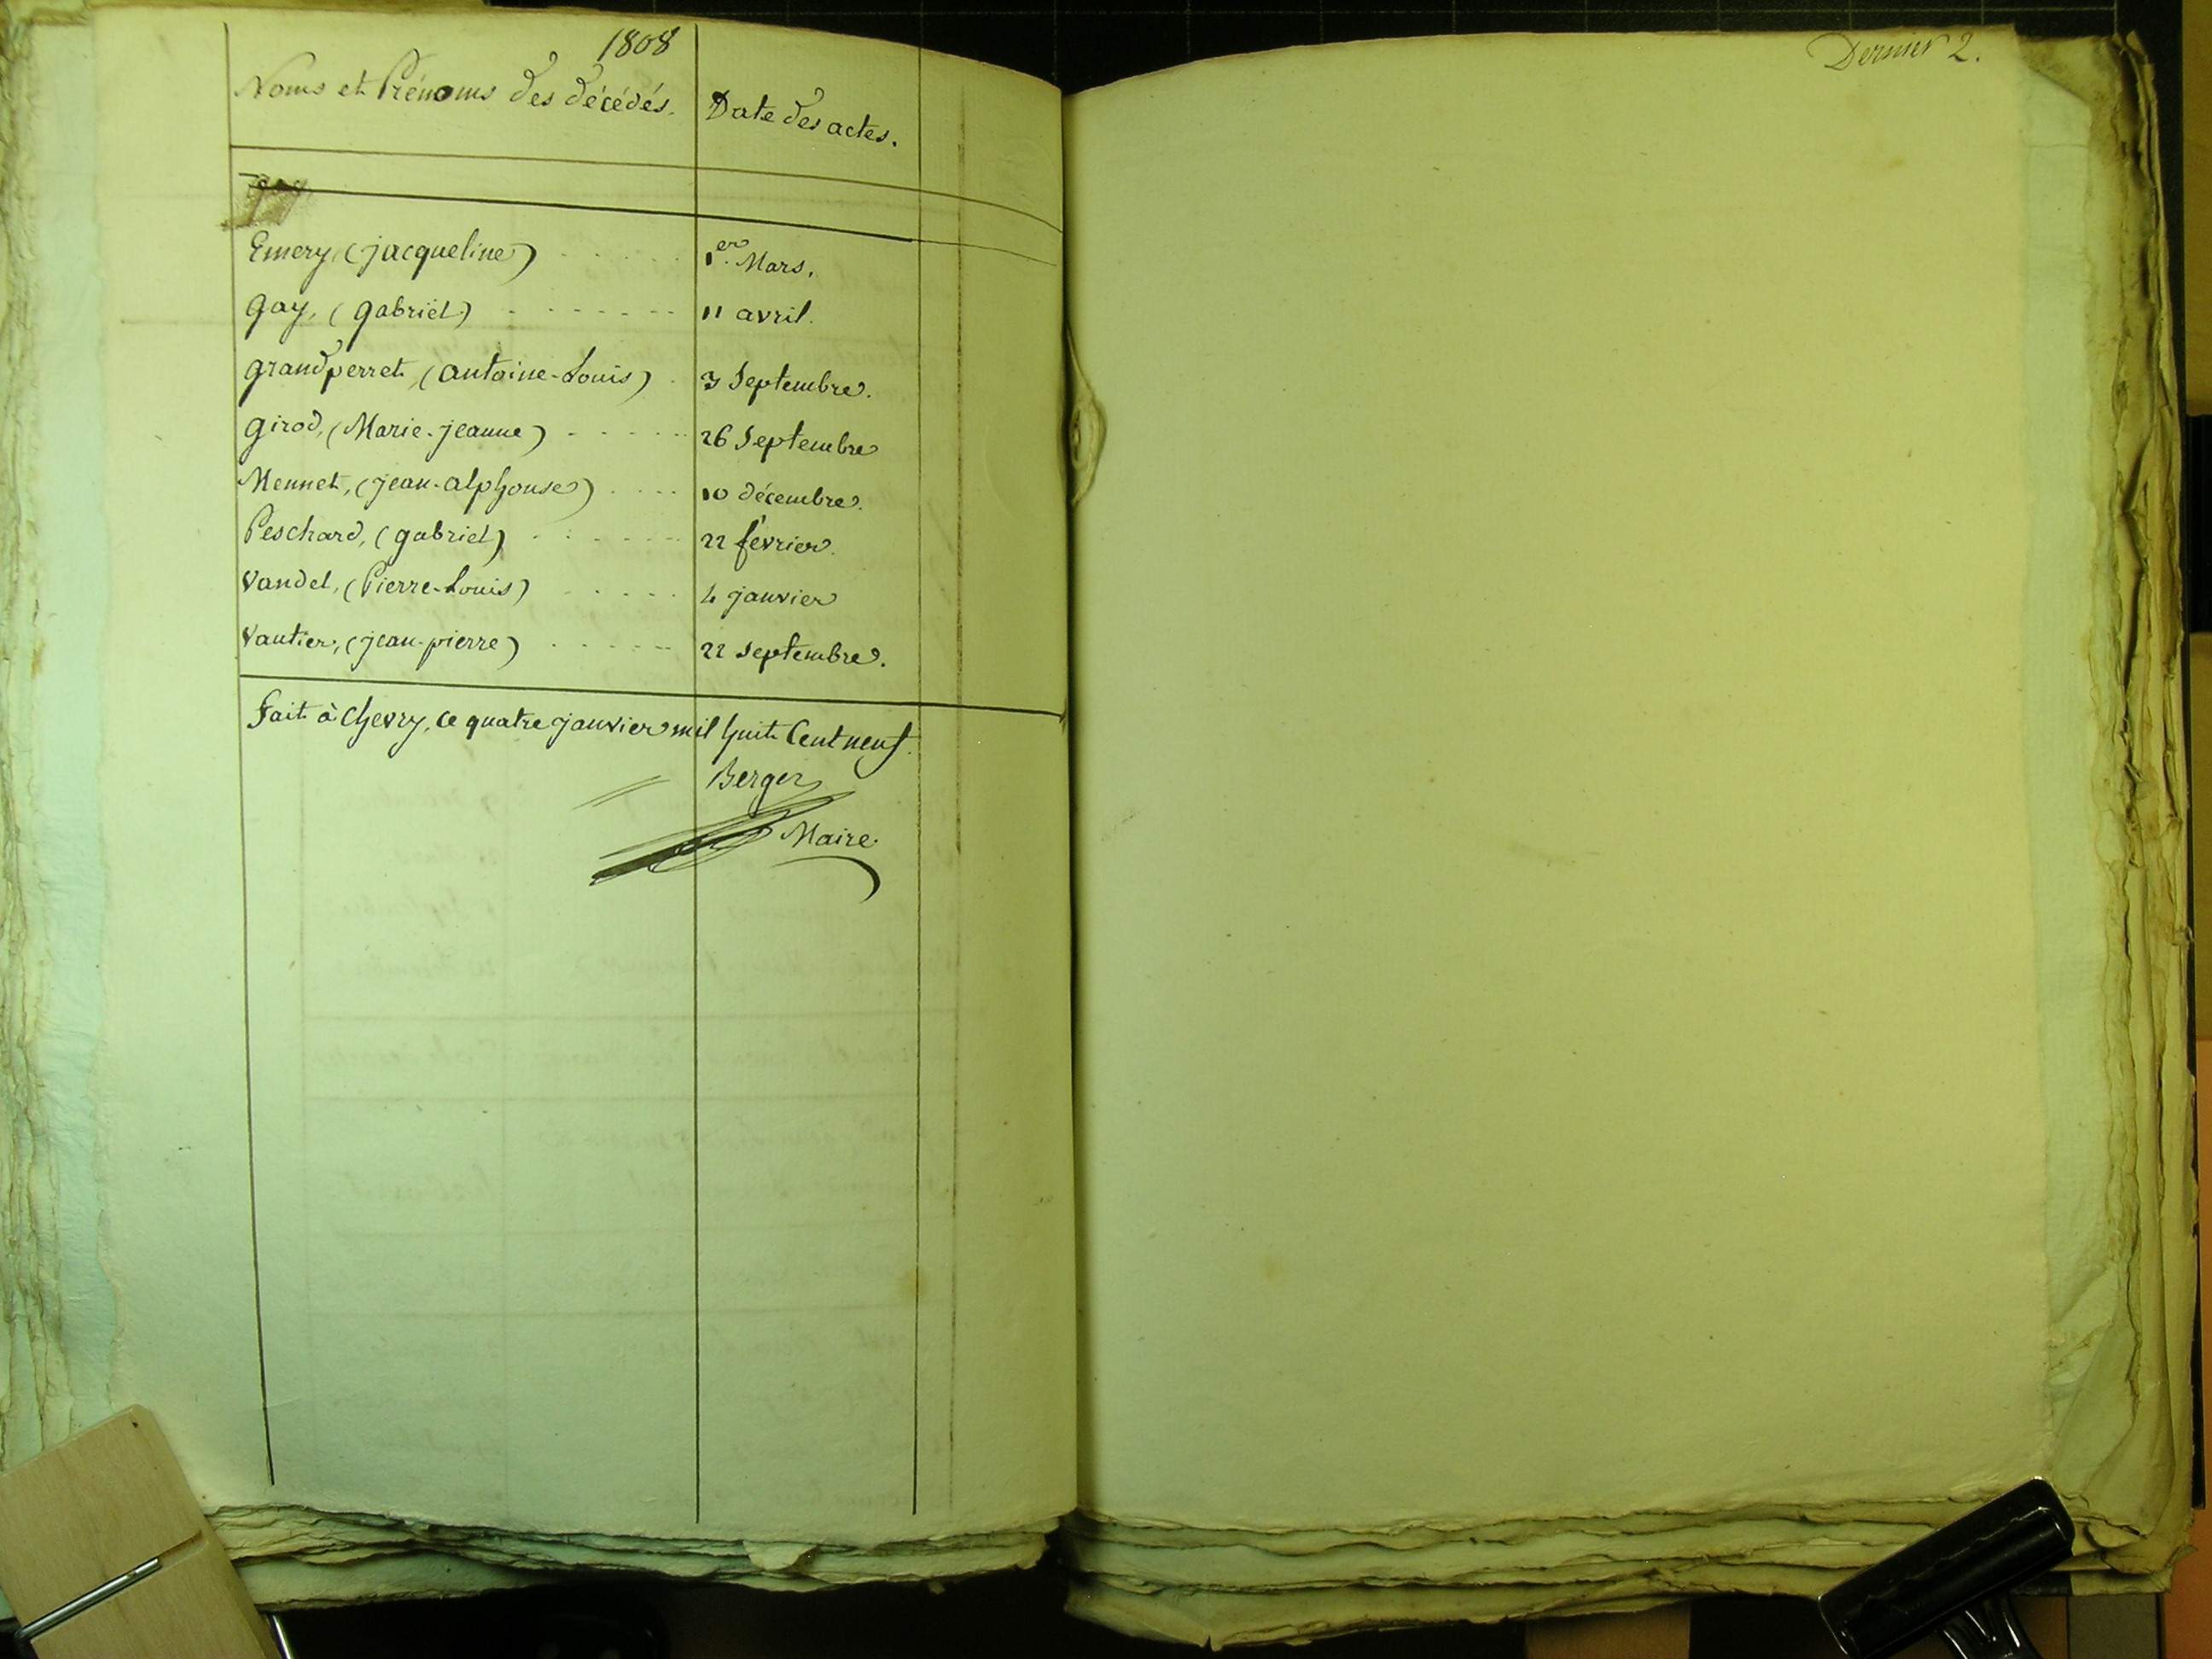 1808
Noms et Prénoms des décédés. Date des actes.
Emery, (jacqueline) 1er. Mars.
gay, (gabriël) 11 avril.
grandperret, (antoine-Louis) 3 Septembre.
girod, (Marie-jeanne) 26 Septembre
Mennet, (jean-alphonse) 10 décembre.
Peschard, (gabriel) 22 février.
Vandel, (Pierre-Louis) 4 janvier
Vautier, (jean-pierre) 22 septembre.
fait à Chevry, ce quatre janvier mil huit Cent neuf.
Berger
Maire
Dernier 2.